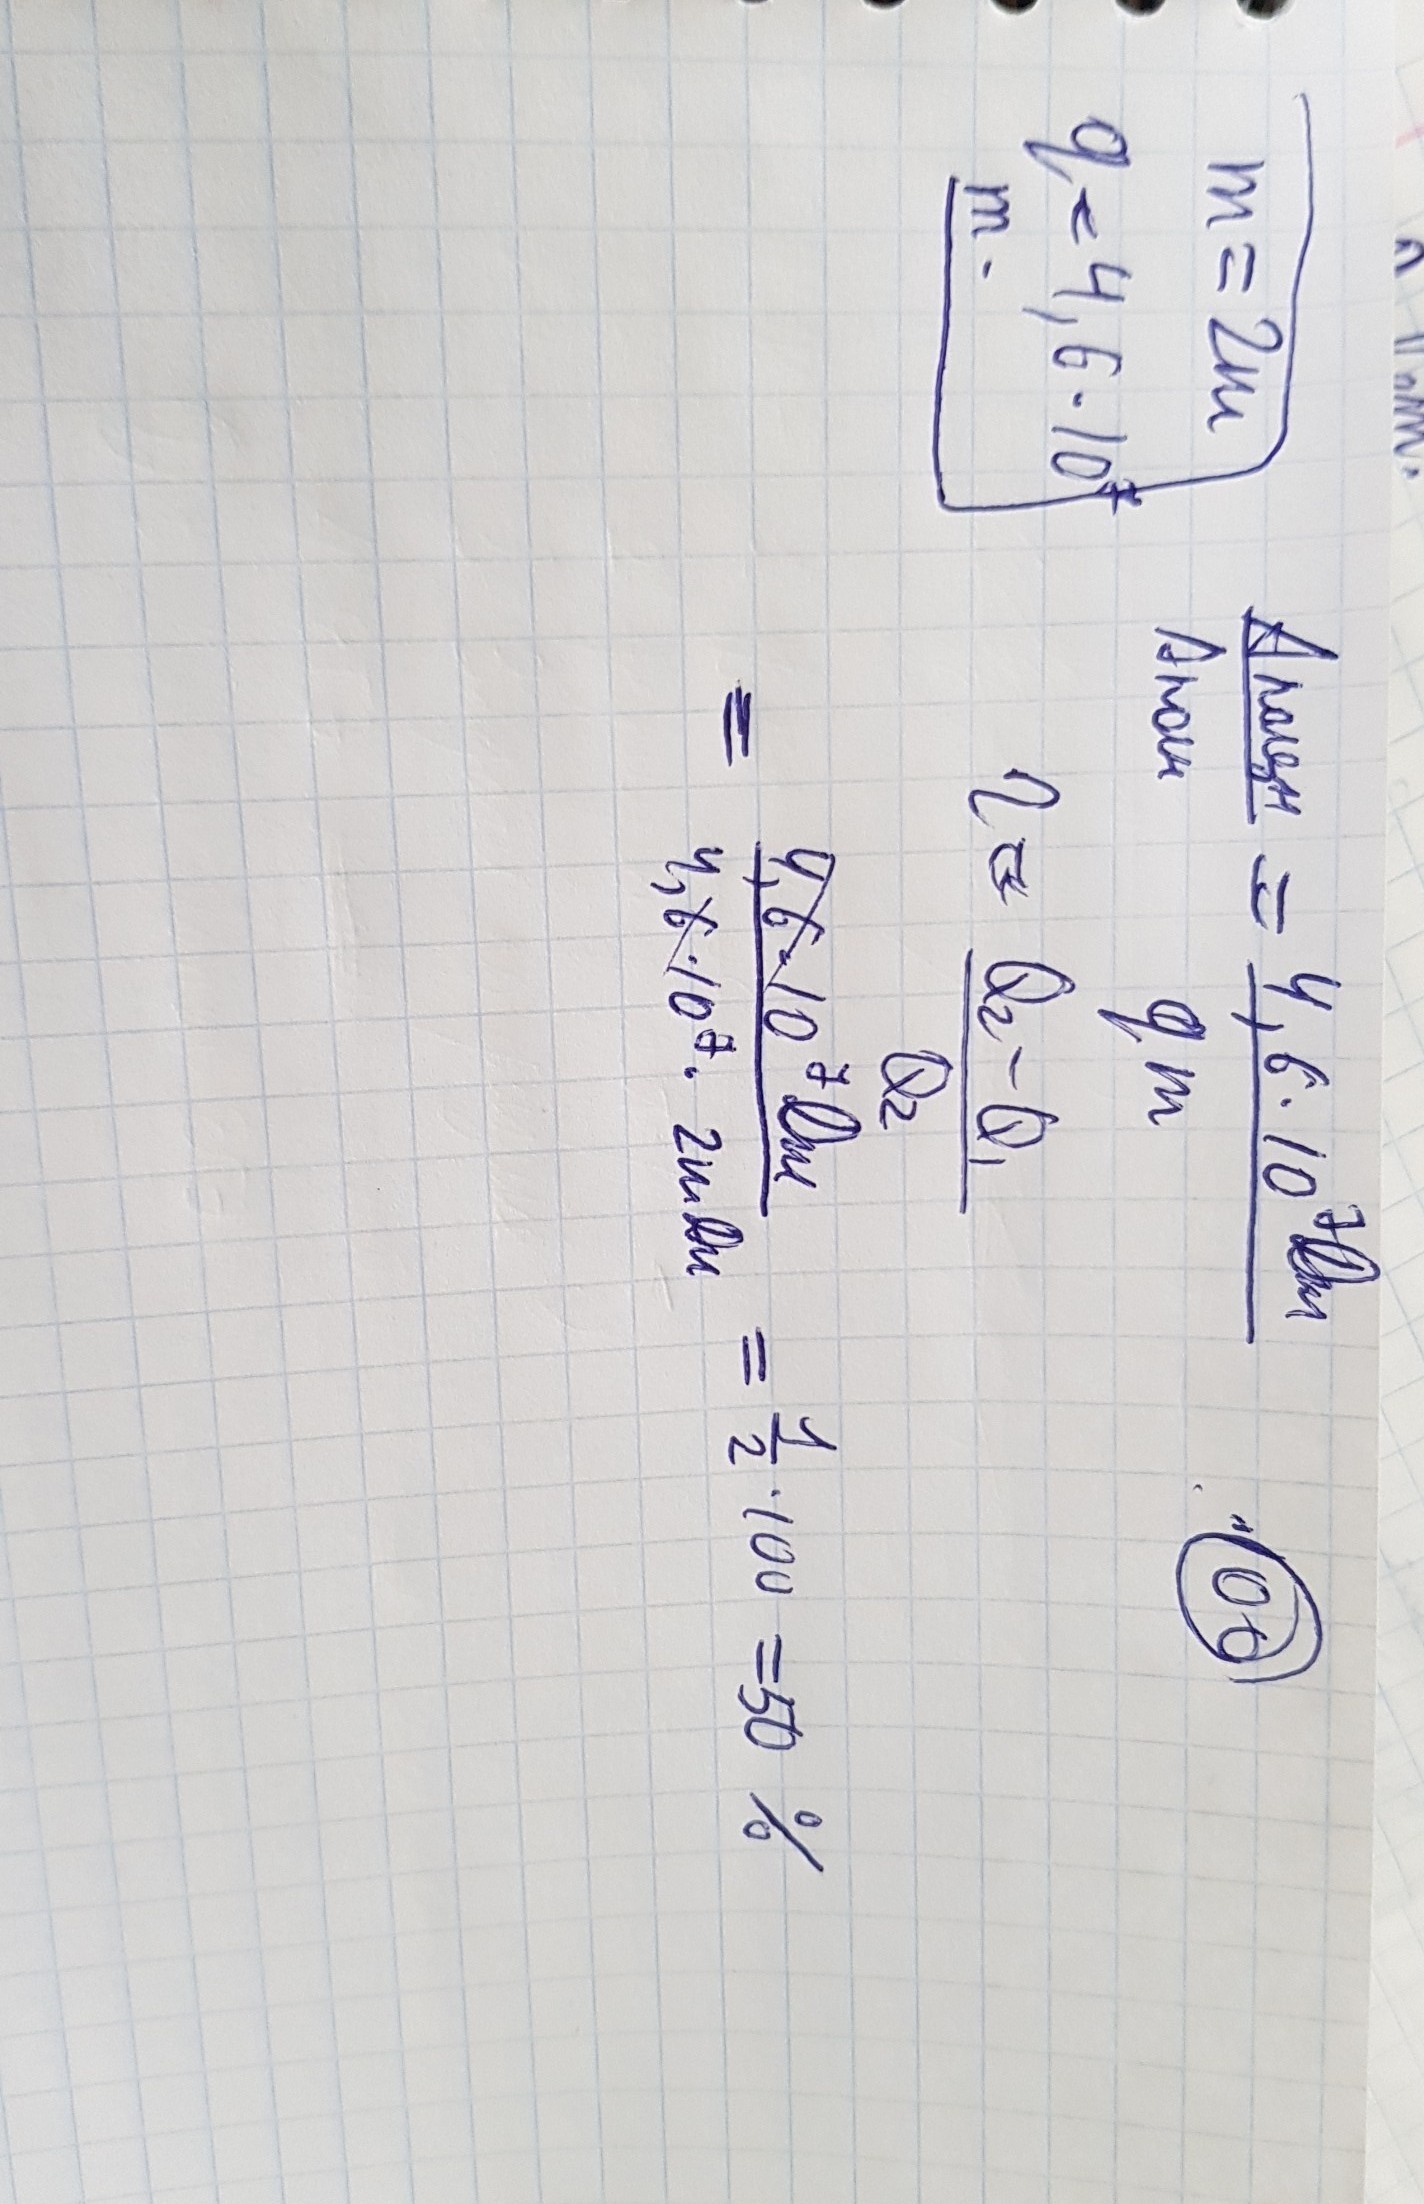 m = 2т
q = 4,6 · 10⁷
m.
Aполезн / Aполн = 4,6 · 10⁷ Дж / q m
η = Q₂ - Q₁ / Q₂
= 4,6 · 10⁷ Дж / 4,6 · 10⁷ · 2 = 1/2 · 100 = 50 %